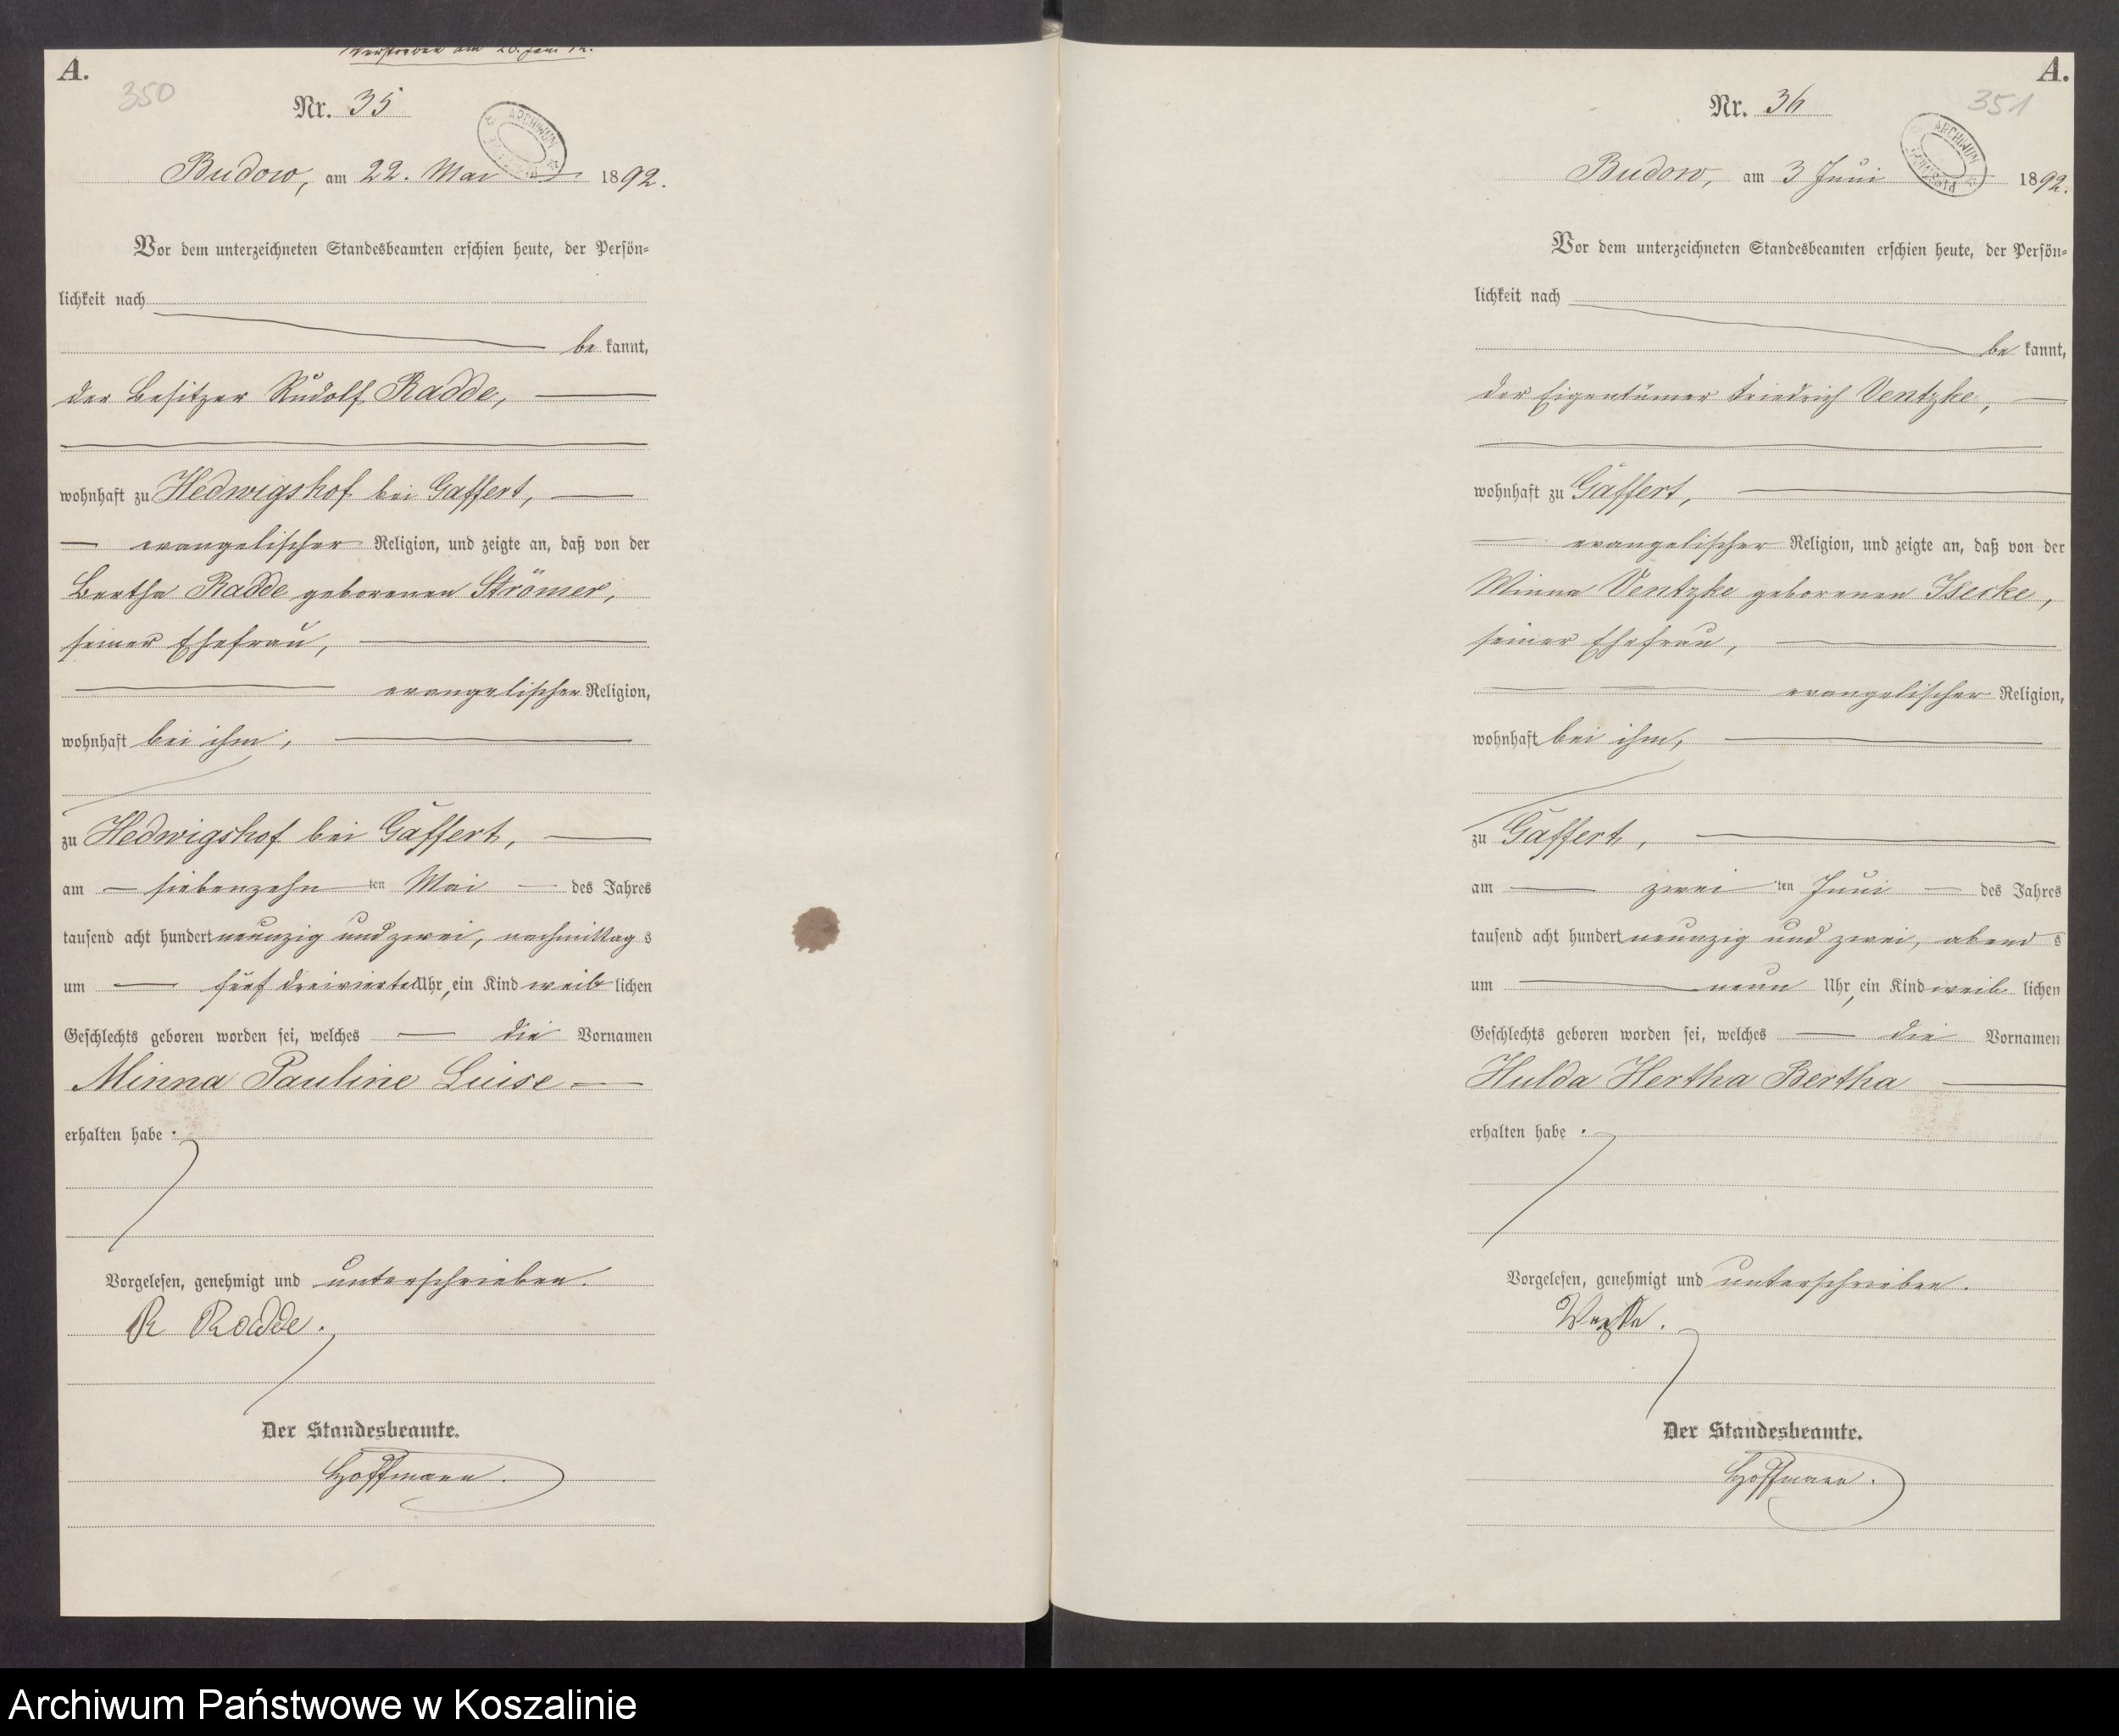 Verstorben am
A.
350
Nr. 35
ARCHIWUM
Budow, am 22. Mai 1892.
Vor dem unterzeichneten Standesbeamten erschien heute, der Persön-
lichkeit nach
be kannt,
der Besitzer Rudolf Radde,
wohnhaft zu Hedwigshof bei Gaffert,
evangelischer Religion, und zeigte an, daß von der
Bertha Radde geborenen Strömer,
seiner Ehefrau,
evangelischer Religion,
wohnhaft bei ihm,
zu Hedwigshof bei Gaffert,
am siebenzehn ten Mai des Jahres
tausend acht hundert neunzig und zwei, nachmittag s
um fünf dreiviertel Uhr, ein Kind weib lichen
Geschlechts geboren worden sei, welches die Vornamen
Minna Pauline Luise
erhalten habe.
Vorgelesen, genehmigt und unterschrieben.
R Radde.
Der Standesbeamte.
Hoffmann.
A.
351
Nr. 36
ARCHIWUM
Budow, am 3 Juni 1892.
Vor dem unterzeichneten Standesbeamten erschien heute, der Persön-
lichkeit nach
be kannt,
der Eigentümer Friedrich Ventzke,
wohnhaft zu Gaffert,
evangelischer Religion, und zeigte an, daß von der
Minna Ventzke geborenen Isecke,
seiner Ehefrau,
evangelischer Religion,
wohnhaft bei ihm,
zu Gaffert,
am zwei ten Juni des Jahres
tausend acht hundert neunzig und zwei, abend s
um neun Uhr, ein Kind weib lichen
Geschlechts geboren worden sei, welches die Vornamen
Hulda Hertha Bertha
erhalten habe.
Vorgelesen, genehmigt und unterschrieben.
Der Standesbeamte.
Hoffmann.
Archiwum Państwowe w Koszalinie